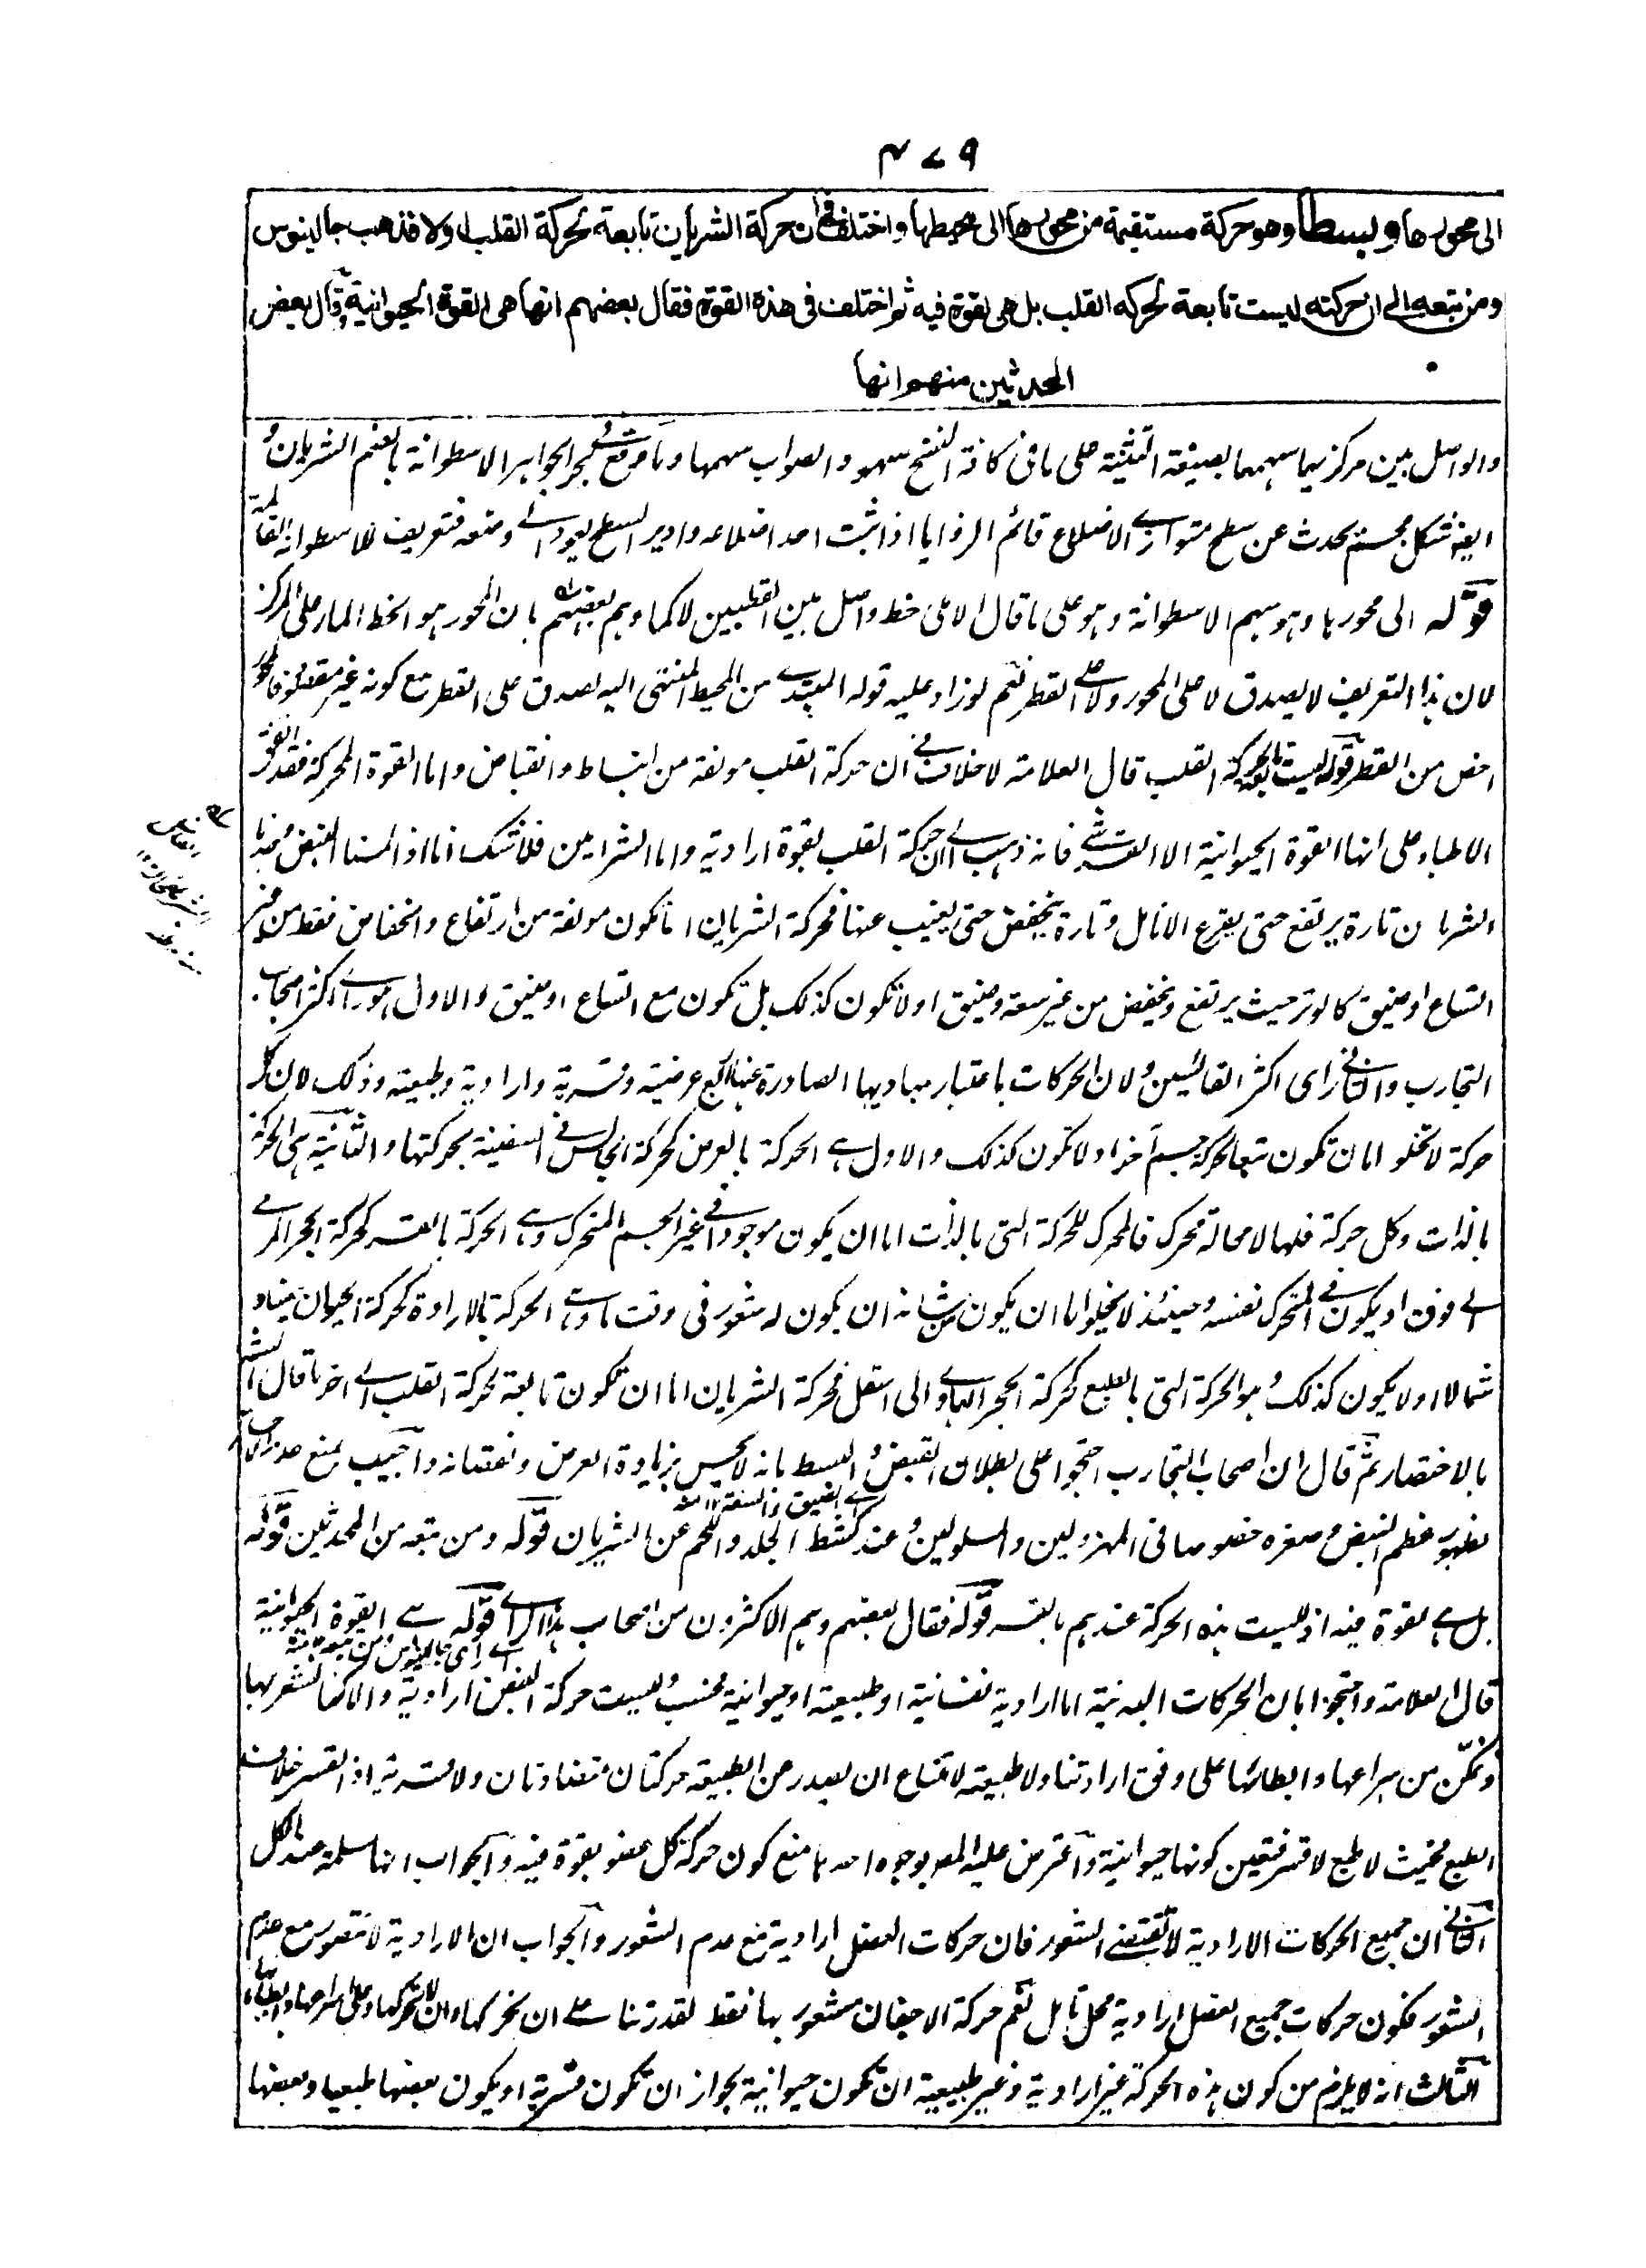 ٤٧٩
الى محورها وبسطا وهو حركة مستقيمة من محورها الى محيطها واختلف في ان حركة الشريان تابعة لحركة القلب اولا فذهب جالينوس
ومن تبعه الى ان حركته ليست تابعة لحركه القلب بل هى بقوة فيه ثم اختلف فى هذه القوة فقال بعضهم انها هى القوة الحيوانية وقال بعض
المحدثين منهم انها
والواصل بين مركزيهما سهمهما بصيغة التثنية على ما فى كافة النسخ سهو والصواب سهمها وما وقع فى بحر الجواهر الاسطوانة بالضم الشريان و
ايضا شكل مجسم يحدث عن سطح متوازى الاضلاع قائم الزوايا اذا ثبت احد اضلاعه وادير السطح ليعود الى وضعه فتعريف للاسطوانة القائمة
قوله الى محورها وهو سهم الاسطوانة وهو على ما قال الاملى خط واصل بين القطبين لا كما وهم بعضهم بان المحور هو الخط المار على المركز
لان هذا التعريف لا يصدق لا على المحور ولا على القطر نعم لو زاد عليه قوله المبتدى من المحيط المنتهى اليه لصدق على القطر مع كونه غير مقصود فالمحور
اخص من القطر قوله ليست تابعة لحركة القلب قال العلامة لا خلاف فى ان حركة القلب مولفة من انبساط وانقباض واما القوة المحركة فقد اتفق
الاطباء على انها القوة الحيوانية الا القرشى فانه ذهب الى ان حركة القلب بقوة ارادية واما الشرايين فلا شك انا اذا لمسنا النبض نجد
الشريان تارة يرتفع حتى يقرع الانامل وتارة ينخفض حتى يغيب عنها فحركة الشريان اما تكون مولفة من ارتفاع وانخفاض فقط من غير
اتساع او ضيق كالوتر حيث يرتفع وينخفض من غير سعة وضيق او لا تكون كذلك بل تكون مع اتساع او ضيق والاول هو راى اكثر اصحاب
التجارب والثانى راى اكثر القائسين ولان الحركات باعتبار مباديها الصادرة عنها اربع عرضية وقسرية وارادية وطبعية وذلك لان كل
حركة لا تخلو اما ان تكون تبعا لحركة جسم آخر او لا تكون كذلك والاول هى الحركة بالعرض كحركة الجالس فى السفينة بحركتها والثانية هى الحركة
بالذات وكل حركة فلها لا محالة محرك فالمحرك للحركة التى بالذات اما ان يكون موجودا فى غير الجسم المتحرك وهى الحركة بالقسر كحركة الحجر المرمى
الى فوق او يكون فى المتحرك نفسه وحينئذ لا يخلو اما ان يكون من شانه ان يكون له شعور فى وقت ما وهى الحركة بالارادة كحركة الحيوان يمينا و
شمالا او لا يكون كذلك وهو الحركة التى بالطبع كحركة الحجر الهاوى الى اسفل فحركة الشريان اما ان تكون تابعة لحركة القلب الى اخر ما قال الشارح
بالاختصار ثم قال ان اصحاب التجارب احتجوا على بطلان القبض والبسط بانه لا يحس بزيادة العرض ونقصانه واجيب بمنع عدم الاحساس
اى الضيق والسعة ١٢ منه
بظهور عظم النبض وصغره خصوصا فى المهزولين والمسلولين وعند كشط الجلد واللحم عن الشريان قوله ومن تبعه من المحدثين قوله
بل هى بقوة فيه اذ ليست هذه الحركة عندهم بالقسر قوله فقال بعضهم وهم الاكثرون من اصحاب هذا الراى قوله هى القوة الحيوانية
اى راى جالينوس ومن تبعه ١٢ منه
قال العلامة واحتجوا بان الحركات البدنية اما ارادية نفسانية او طبيعية او حيوانية فحسب وليست حركة النبض ارادية والا لكنا نشعر بها
ونتمكن من اسراعها وابطائها على وفق ارادتنا ولا طبيعية لامتناع ان يصدر عن الطبيعة حركتان متضادتان ولا قسرية اذ القسر خلاف
الطبع فحيث لا طبع لا قسر فتعين كونها حيوانية واعترض عليه المص بوجوه احدها منع كون حركة كل عضو بقوة فيه والجواب انها مسلمة عند الكل
الثانى ان جميع الحركات الارادية لا تقتضى الشعور فان حركات العضل ارادية مع عدم الشعور والجواب ان الارادية لا تتصور مع عدم
الشعور فكون حركات جميع العضل ارادية محل تامل نعم حركة الاجفان مشعور بها فقط لقدرتنا على ان نحركها وان لا نحركها وعلى اسراعها وابطائها
الثالث انه لا يلزم من كون هذه الحركة غير ارادية وغير طبيعية ان تكون حيوانية لجواز ان تكون قسرية او يكون بعضها طبعيا وبعضها